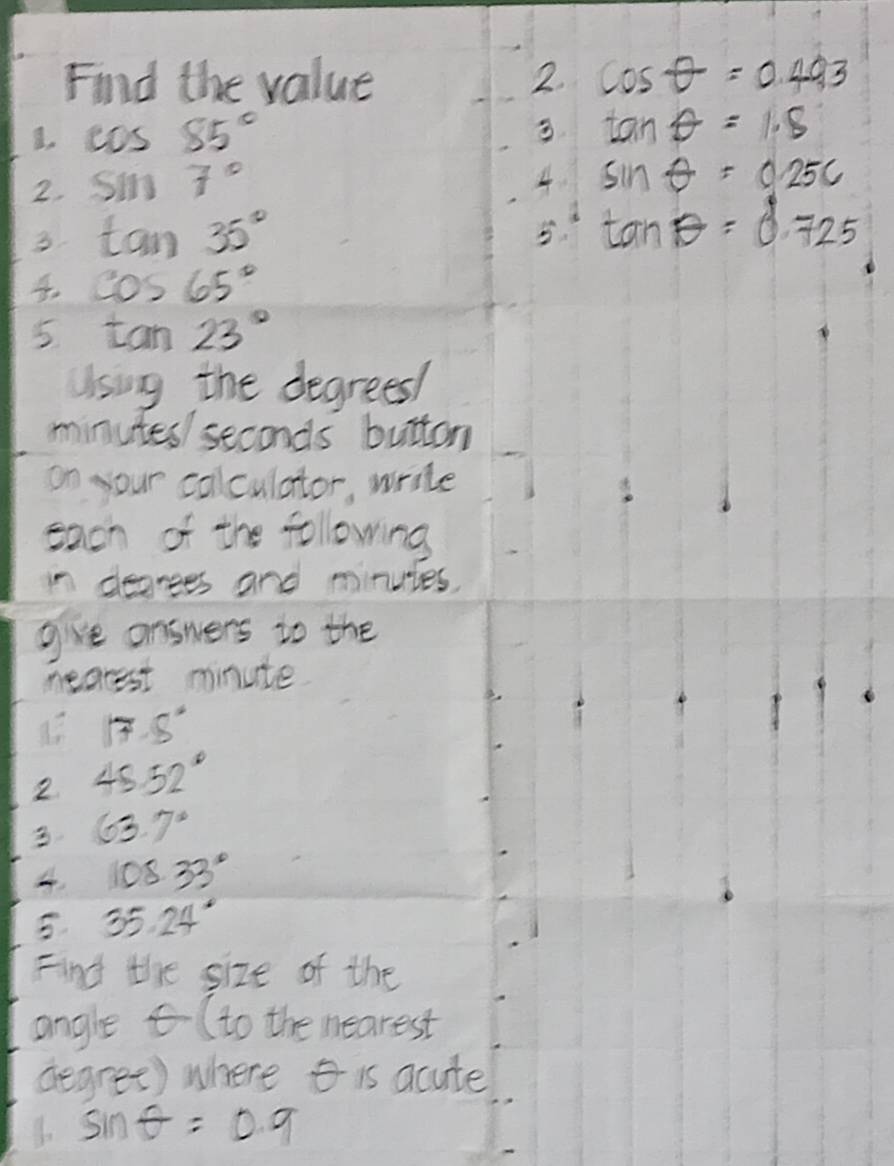 Find the value
1. cos 85°
2. sin 7°
3. tan 35°
4. cos 65°
5. tan 23°
Using the degrees/
minutes/seconds button
on your calculator, write
each of the following
in degrees and minutes.
give answers to the
nearest minute
1. 17.8°
2. 48.52°
3. 63.7°
4. 108.33°
5. 35.24°
Find the size of the
angle θ (to the nearest
degree) where θ is acute
1. sin θ = 0.9
2. cos θ = 0.493
3. tan θ = 1.8
4. sin θ = 0.256
5. tan θ = 0.725